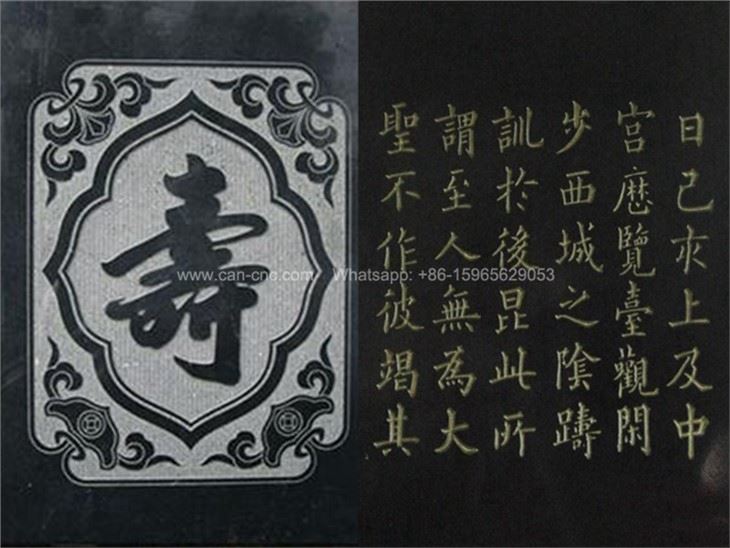 壽
日己亥上及中
宮歷覽臺觀閑
步西城之陰躊
訓於後昆此所
謂至人無為大
聖不作彼竭其
www.can-cnc.com Whatsapp: +86-15965629053